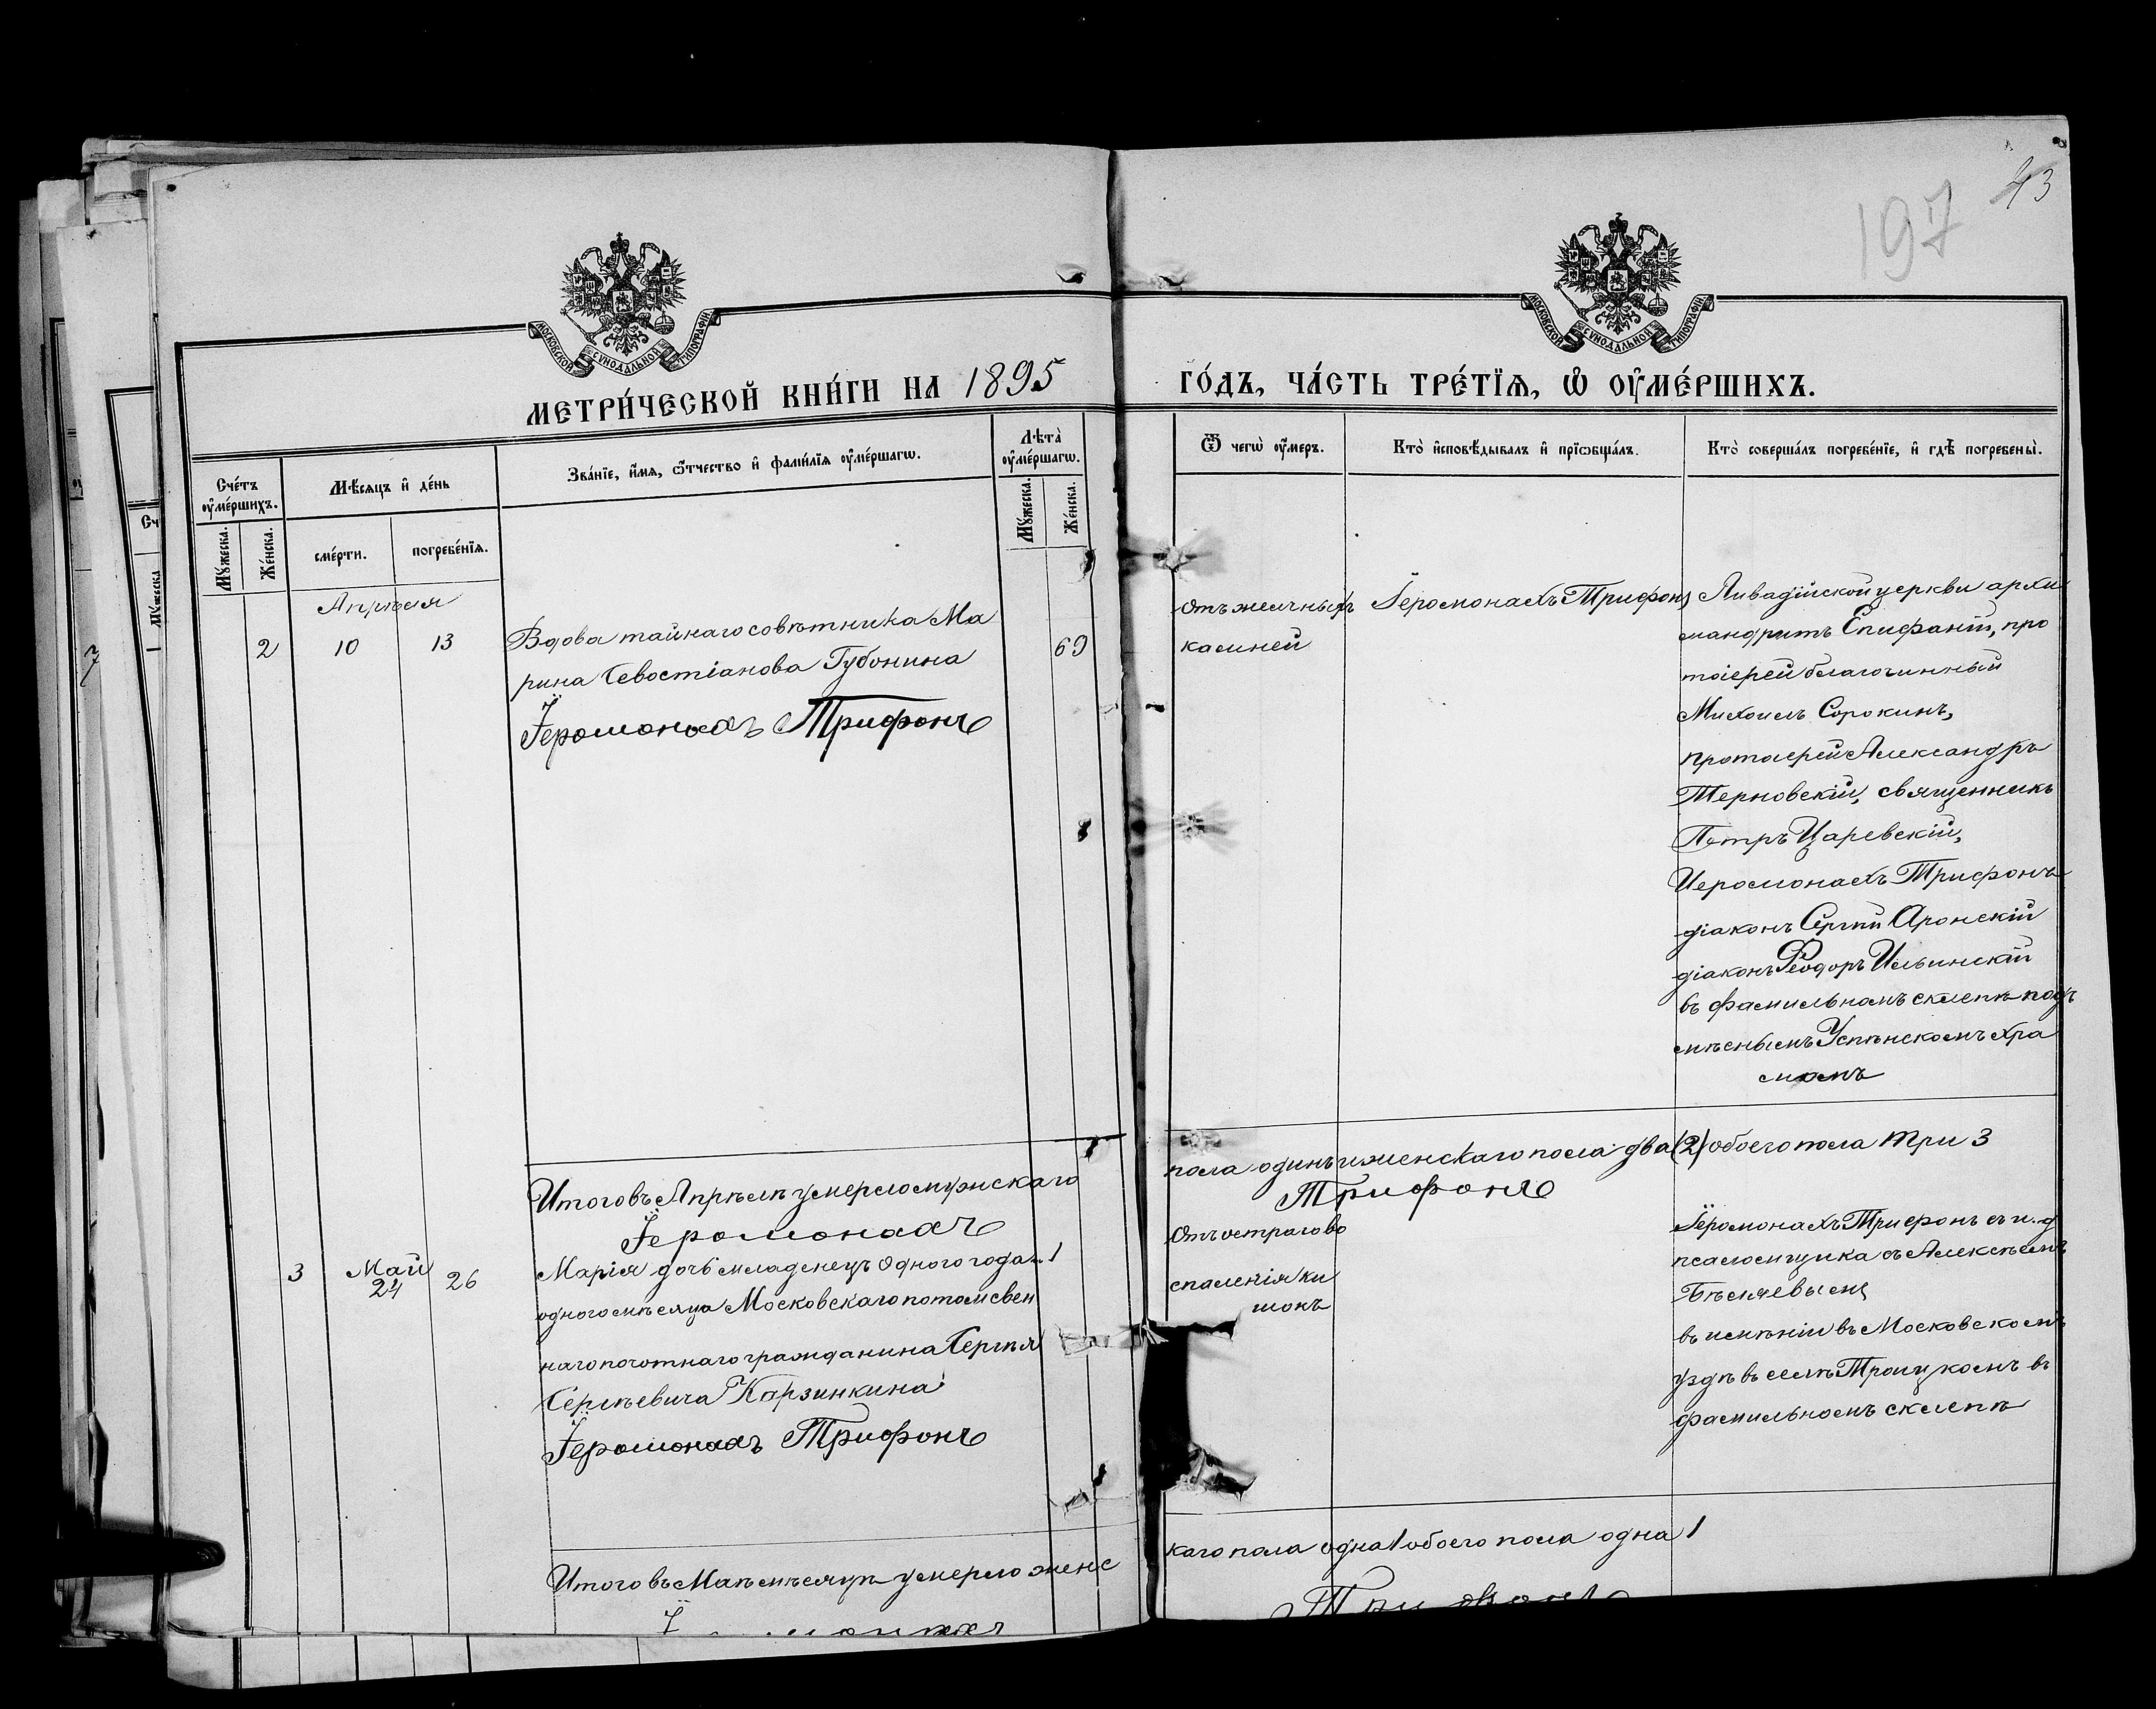 197 43
МОСКОВСКОЙ СѴНОДАЛЬНОЙ ТИПОГРАФІИ
МОСКОВСКОЙ СѴНОДАЛЬНОЙ ТИПОГРАФІИ
МЕТРИ́ЧЕСКОЙ КНИ́ГИ НА 1895 ГО́ДЪ, ЧА́СТЬ ТРЕ́ТЇѦ, Ѡ҆ ОУ҆МЕ́РШИХЪ.
Сче́тъ оу҆ме́ршихъ.
Мѣ́сяцъ и҆ де́нь
Зва́нїе, и҆́мѧ, ѻ҆́тчество и҆ фамі́лїѧ оу҆ме́ршагѡ.
Лѣта̀ оу҆ме́ршагѡ.
Ѿ чегѡ̀ оу҆́меръ.
Кто̀ и҆сповѣ́дывалъ и҆ прїѡбща́лъ.
Кто̀ соверша́лъ погребе́нїе, и҆ гдѣ̀ погребены̀.
Мꙋ́жеска.
Же́нска.
сме́рти.
погребе́нїѧ.
Мꙋ́жеска.
Же́нска.
Апрѣля
2 10 13
Вдова тайнаго совѣтника Ма
рина Севостіанова Губонина
Іеромонахъ Трифонъ
69
Отъ желчныхъ
камней
Іеромонахъ Трифонъ
Ливадійской церкви архи
мандритъ Епифаній, про
тоіерей благочинный
Михаилъ Сорокинъ,
протоіерей Александръ
Терновскій, священникъ
Петръ Царевскій,
Иеромонахъ Трифонъ
діаконъ Сергій Аронскій
діаконъ Ѳеодоръ Ильинскій
въ фамильномъ склепѣ подъ
мѣснымъ Успѣнскомъ хра
момъ
Итого въ Апрѣлѣ умерло мужскаго
пола одинъ и женскаго пола два (2) обоего пола три 3
Іеромонахъ Трифонъ
3 Май 24 26
Марія дочь младенецъ одного года и 1
одного мѣсяца Московскаго потомсвен
наго почотнаго гражданина Сергѣя
Сергѣевича Карзинкина
Іеромонахъ Трифонъ
Отъ остраго во
спаленія ки
шокъ
Іеромонахъ Трифонъ съ и. д
псаломщика съ Алексѣемъ
Бѣляевымъ
въ имѣніи въ Московскомъ
уздѣ въ селѣ Троицкомъ въ
фамильномъ склепѣ
Итого въ Маѣ мѣсяцѣ умерло женс
каго пола одна 1 обоего пола одна 1